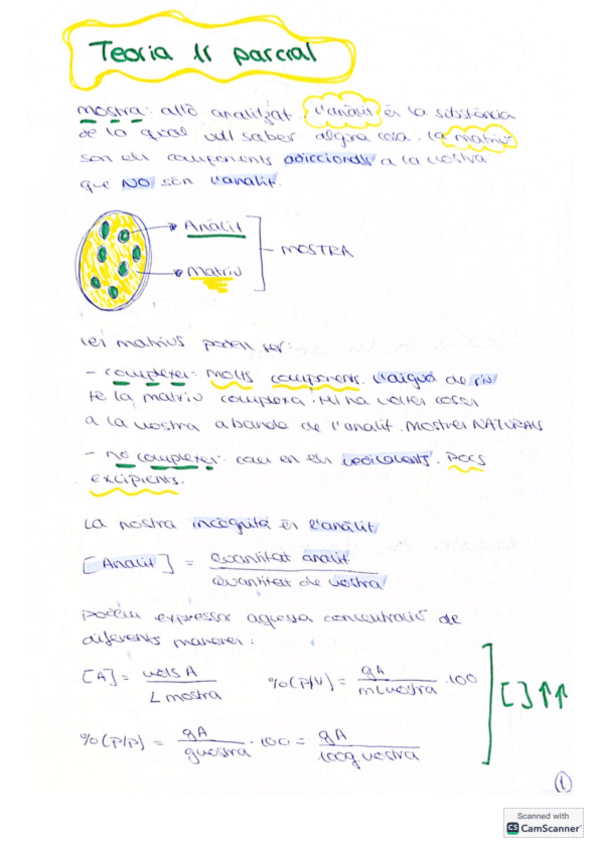 Teoria 1r parcial
mostra: allò analitzat. L'anàlit és la substància
de la qual vull saber alguna cosa. La matriu
són els components addiccionals a la mostra
que NO són l'anàlit.
Anàlit
Matriu
MOSTRA
Les matrius poden ser:
- complexes: molts components. L'aigua de riu
té la matriu complexa. Hi ha voltes coses
a la mostra a banda de l'analit. Mostres NATURALS
- no complexes: com en els medicaments. POCS
excipients.
La nostra incògnita és l'anàlit
[Analit] = quantitat analit / quantitat de mostra
podem expressar aquesta concentració de
diferents maneres:
[A] = mols A / L mostra
%(P/V) = gA / mL mostra · 100
[ ] ↑↑
%(P/P) = gA / g mostra · 100 = gA / 100g mostra
1
Scanned with
CS CamScanner